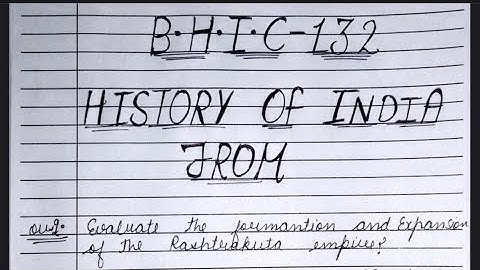 B.H.I.C-132
HISTORY OF INDIA
FROM
Evaluate the formantion and Expansion
of the Rashtrakuta empire?